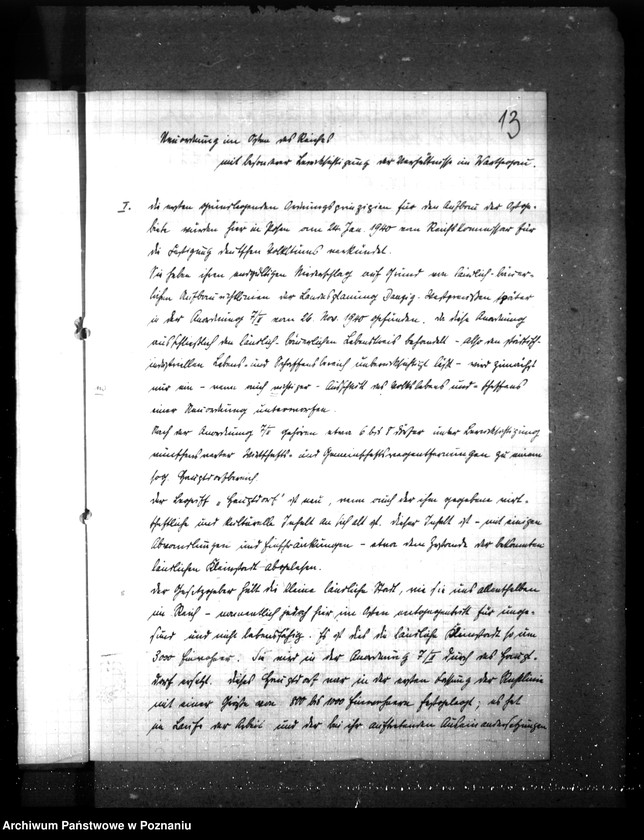 13
Neuordnung im Osten des Reiches
mit besonderer Berücksichtigung der Verhältnisse im Warthegau.
I. Die ersten grundlegenden Ordnungsprinzipien für den Aufbau der Ostge-
biete wurden hier in Posen am 24. Jan. 1940 vom Reichskommissar für
die Festigung deutschen Volkstums verkündet.
Sie haben ihren endgültigen Niederschlag auf Grund von ländlich-bäuer-
lichen Aufbaurichtlinien der Landesplanung Danzig-Westpreußen später
in der Anordnung 7/II vom 26. Nov. 1940 gefunden. Da diese Anordnung
ausschließlich den ländlich-bäuerlichen Lebenskreis behandelt - also den städtisch-
industriellen Lebens- und Schaffensbereich unberücksichtigt läßt - wird zunächst
nur ein - wenn auch wichtiger - Ausschnitt des Volkslebens und -schaffens
einer Neuordnung unterworfen.
Nach der Anordnung 7/II gehören etwa 6 bis 8 Dörfer unter Berücksichtigung
wünschenswerter Wirtschafts- und Gemeinschafts zu einem
sog. Hauptdorfbereich.
Der Begriff "Hauptdorf" ist neu, wenn auch der ihm gegebene wirt-
schaftliche und kulturelle Inhalt an sich alt ist. Dieser Inhalt ist - mit einigen
Abwandlungen und Einschränkungen - etwa dem Zustande der bekannten
ländlichen Kleinstadt abgelesen.
Der Gesetzgeber hält die kleine ländliche Stadt, wie sie uns allenthalben
im Reich - namentlich jedoch hier im Osten entgegentritt für unge-
sund und nicht lebensfähig. Es ist dies die ländliche Kleinstadt so um
3000 Einwohner. Sie wird in der Anordnung 7/II durch das Haupt-
dorf ersetzt. Dieses Hauptdorf war in der ersten Fassung der Richtlinie
mit einer Größe von 800 bis 1000 Einwohnern festgelegt; es hat
im Laufe der Arbeit und der bei ihr auftretenden Auseinandersetzungen
Archiwum Państwowe w Poznaniu